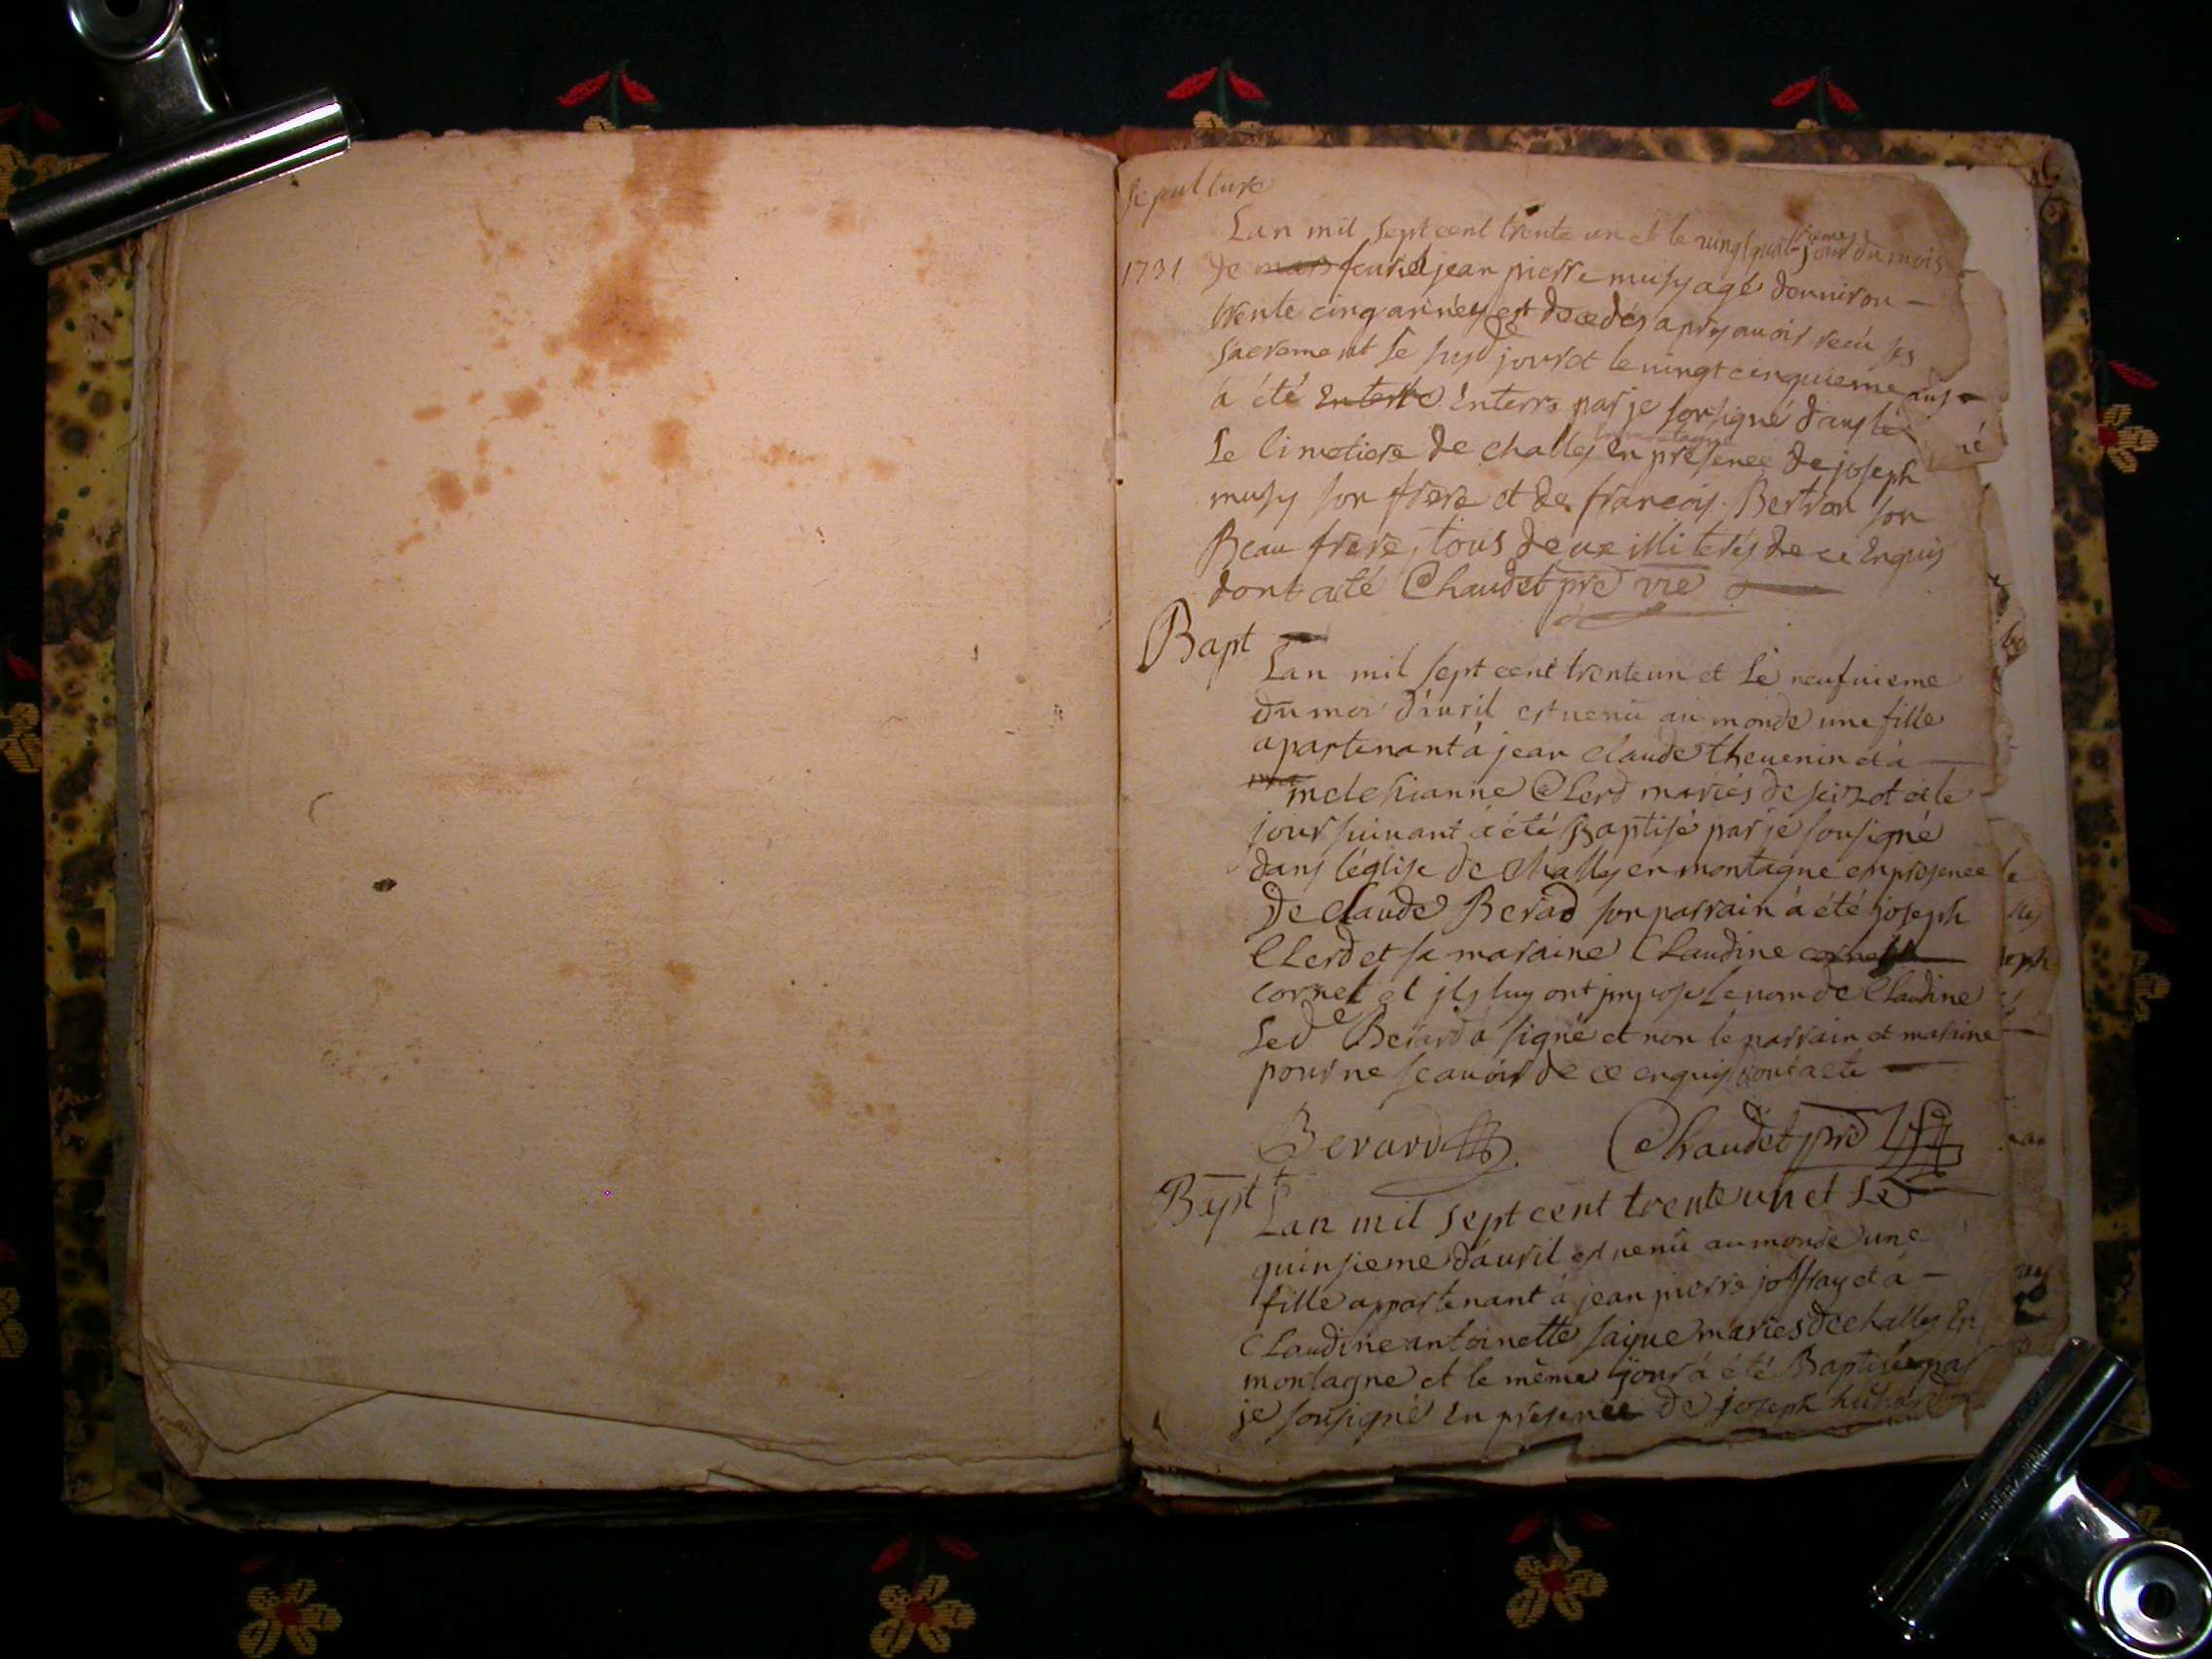 Sepulture
Lan mil sept cent trente un et le vingt quatrieme jour du mois
1731 de mars feurier jean pierre musy agé denuiron
trente cinq années est decedés apres auoir recu ses
sacrement le susd jour et le uingt cinquieme
à été Enterré Enterre par je sousigné dans
Le Cimetiere de challes en montagne En présence de joseph
musy son frere et de francois Bertron son
Beau frere, tous deux illiterés de ce Enquis
dont acte Chaudet pre vre
Bapt
Lan mil sept cent trente un et Le neufuieme
du moi d'auril est uenu au monde une fille
apartenant à jean claude theuenin et à
melesianne Clerd mariés de seizot et le
jour suiuant à été Baptisé par je sousigné
dans l'église de challes en montagne en presence
De claude Berad son parrain à été joseph
Clerd et sa maraine Claudine cornet
cornet et jls luy ont jmposé Le nom de Claudine
Led Berard a signé et non le parrain et maraine
pour ne scauoir de ce enquis dont acte
Berard Chaudet pre
Bapt Lan mil sept cent trente un et Le
quinsieme dauril est uenu au monde une
fille appartenant à jean pierre joffray et à
Claudine antoinette saque maries de challes En
montagne et le même jour à été Baptisée par
je sousigné En presence de joseph hudard